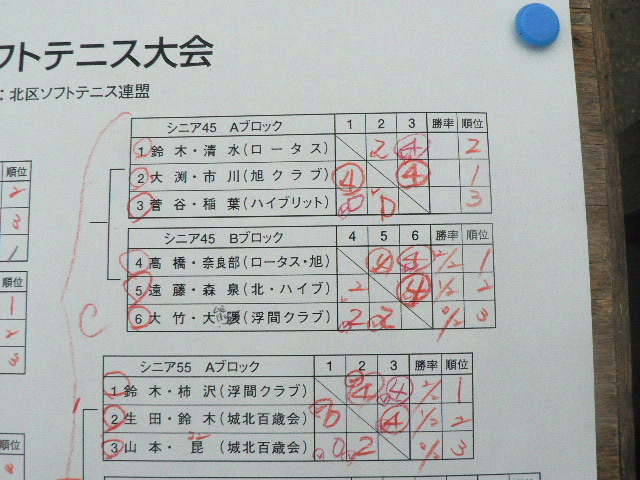 フトテニス大会
: 北区ソフトテニス連盟
順位
2
3
1
順位
1
2
3
順位
C
シニア45 Aブロック 1 2 3 勝率 順位
1 鈴木・清水(ロータス) 2 4 2
2 大渕・市川(旭クラブ) 4 4 1
3 菅谷・稲葉(ハイブリット) 0 0 3
シニア45 Bブロック 4 5 6 勝率 順位
4 高橋・奈良部(ロータス・旭) 4 4 2/2 1
5 遠藤・森泉(北・ハイブ) 2 4 1/2 2
6 大竹・大張(浮間クラブ) 2 2 0/2 3
シニア55 Aブロック 1 2 3 勝率 順位
1 鈴木・柿沢(浮間クラブ) 4 4 2/2 1
2 生田・鈴木(城北百歳会) 0 4 1/2 2
3 山本・昆(城北百歳会) 0 2 0/2 3